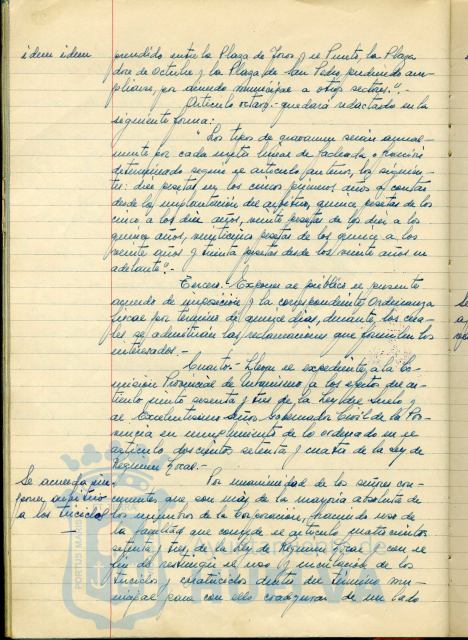 idem idem
prendido entre la Plaza de Toros y el Punto, la Plaza
doce de Octubre y la Plaza de San Pedro, pudiendo am-
pliarse, por acuerdo municipal a otros sectores."-
Artículo octavo.- quedará redactado en la
siguiente forma:
"Los tipos de gravamen serán anual-
mente por cada metro lineal de fachada o fracción
determinado según el artículo anterior, los siguien-
tes: diez pesetas en los cinco primeros años a contar
desde la implantación del arbitrio, quince pesetas de los
cinco a los diez años, veinte pesetas de los diez a los
quince años, veinticinco pesetas de los quince a los
veinte años y treinta pesetas desde los veinte años en
adelante".-
Tercero.- Exponer al público el presente
acuerdo de imposición y la correspondiente Ordenanza
fiscal por término de quince días, durante los cua-
les se admitirán las reclamaciones que formulen los
interesados.-
Cuarto.- Elevar el expediente, a la Co-
misión Provincial de Urbanismo a los efectos del ar-
tículo ciento sesenta y tres de la Ley del Suelo y
al Excelentísimo Señor Gobernador Civil de la Pro-
vincia en cumplimiento de lo ordenado en el
artículo doscientos setenta y cuatro de la Ley de
Régimen Local.-
Se acuerda im-
poner arbitrio
a los triciclos
Por unanimidad de los señores con-
currentes, que son más de la mayoría absoluta de
los miembros de la Corporación, haciendo uso de
la facultad que concede el artículo cuatrocientos
setenta y tres de la Ley de Régimen Local y con el
fin de restringir el uso y circulación de los
triciclos y cuatriciclos dentro del término mu-
nicipal para con ello coadyuvar de un lado